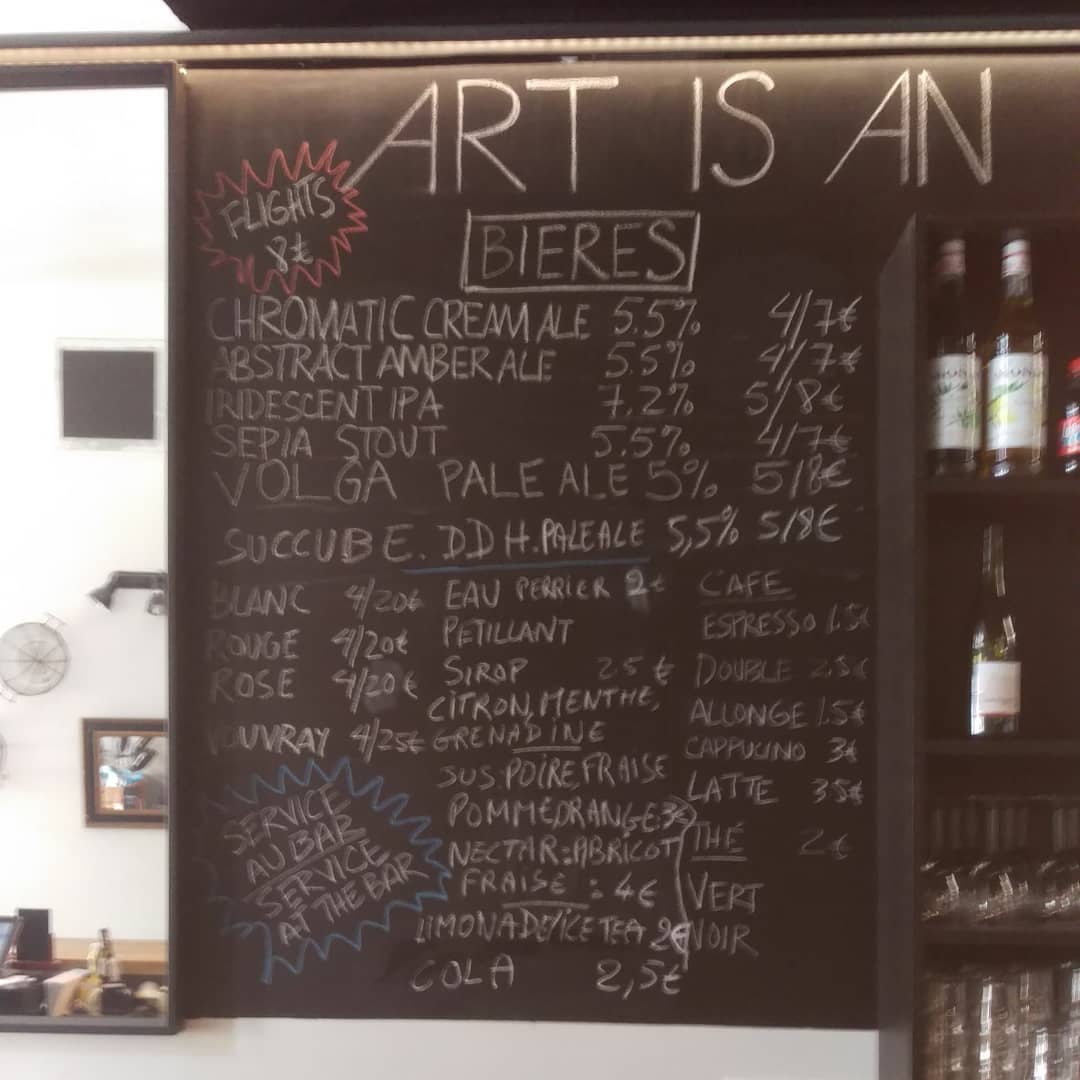 ART IS AN
FLIGHTS
8€
BIERES
CHROMATIC CREAM ALE 5.5% 4/7€
ABSTRACT AMBER ALE 5.5% 4/7€
IRIDESCENT IPA 7.2% 5/8€
SEPIA STOUT 5.5% 4/7€
VOLGA PALE ALE 5% 5/8€
SUCCUBE. DDH. PALE ALE 5,5% 5/8€
BLANC 4/20€
ROUGE 4/20€
ROSE 4/20€
VOUVRAY 4/25€
SERVICE
AU BAR
SERVICE
AT THE BAR
EAU PERRIER 2€
PETILLANT
SIROP 25€
CITRON, MENTHE,
GRENADINE
JUS: POIRE, FRAISE
POMME ORANGE: 3€
NECTAR: ABRICOT
FRAISE: 4€
LIMONADE/ICE TEA 2€
COLA 2,5€
CAFE
ESPRESSO 1.5€
DOUBLE 2.5€
ALLONGE 1.5€
CAPPUCINO 3€
LATTE 35€
THE 2€
VERT
NOIR